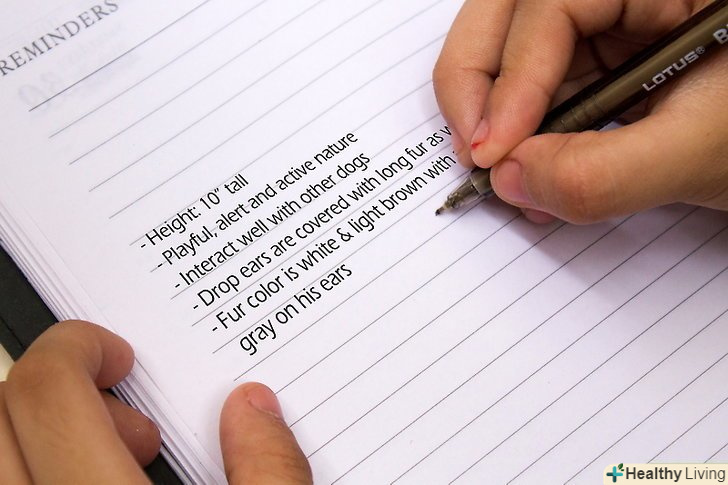 REMINDERS
- Height: 10” tall
- Playful, alert and active nature
- Interact well with other dogs
- Drop ears are covered with long fur as
- Fur color is white & light brown with
gray on his ears
LOTUS®
Healthy Living